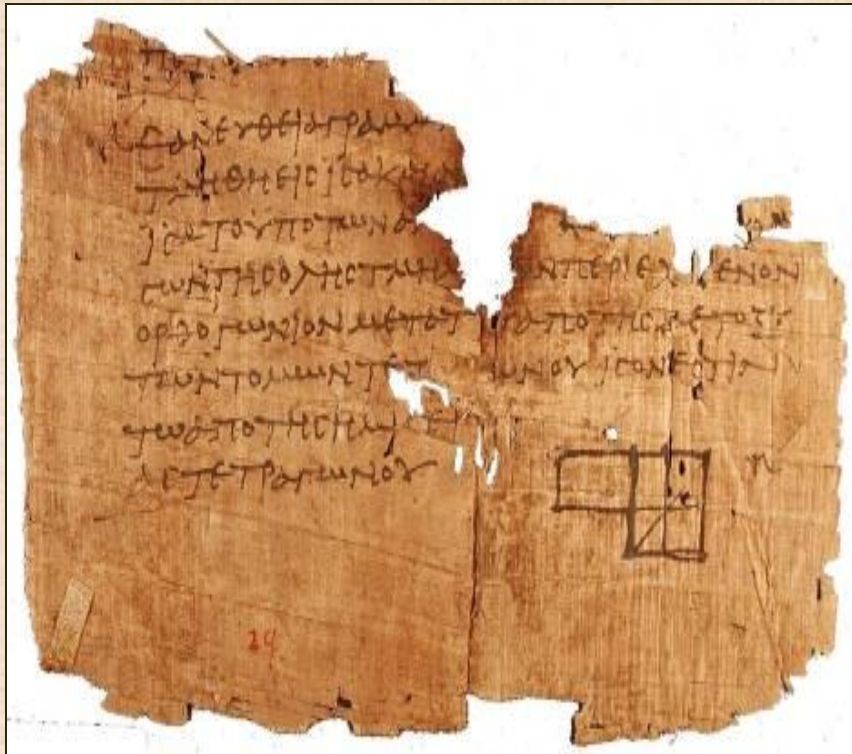 ΕΑΝ ΕΥΘΕΙΑ ΓΡΑΜΜ
ΤΜΗΘΗ ΕΙϹ ΙϹΑ Κ ΑΝ
ΙϹΑ ΤΟ ΥΠΟ ΤΩΝ Α
ϹΩΝ ΤΗϹ ΟΛΗϹ ΤΜΗ ΩΝ ΠΕΡΙΕΧ ΕΝΟΝ
ΟΡΘΟΓΩΝΙΟΝ ΜΕΤΑ Τ ΑΠΟ ΤΗϹ ΜΕΤΟΞΥ
ΤΩΝ ΤΟΜΩΝ ΤΕΤ ΩΝΟΥ ΙϹΟΝ ΕϹΤΙΝ
ΤΩ ΑΠΟ ΤΗϹ ΗΜΙϹΕΙ
ΑϹ ΤΕΤΡΑΓΩΝΟΥ
29